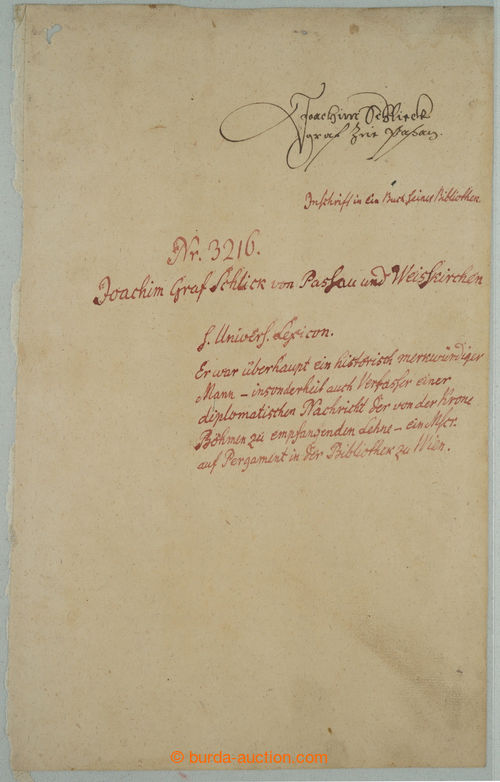 Joachim Schlieck
graf zue Pasau.
Inschrift in ein Buch seiner Bibliothek.
Nr. 3216.
Joachim Graf Schlick von Passau und Weisskirchen
s. Univers. Lexicon.
Er war überhaupt ein historisch merkwürdiger
Mann – insonderheit auch Verfasser einer
diplomatischen Nachricht der von der Krone
Böhmen zu empfangenden Lehne – ein Mscr.
auf Pergament in der Bibliothek zu Wien.
© burda-auction.com